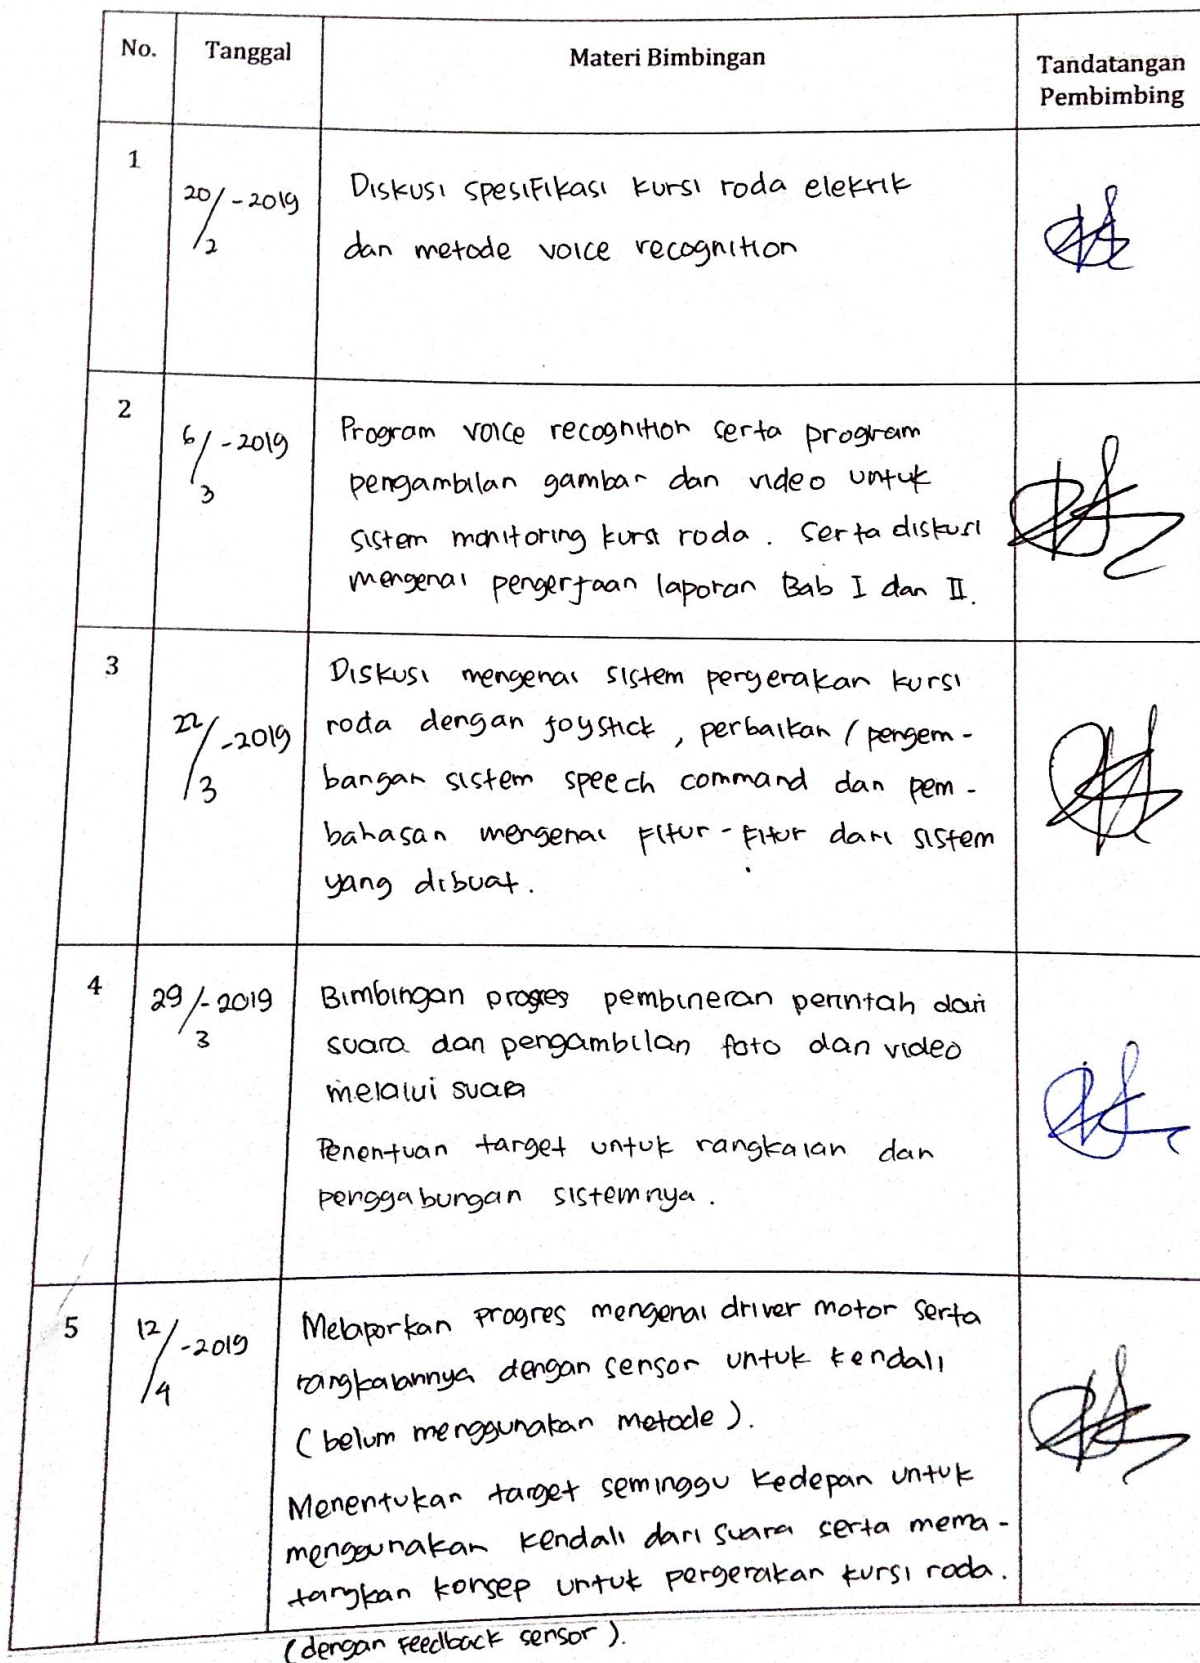 No. Tanggal Materi Bimbingan Tandatangan
Pembimbing
1
20/2-2019
Diskusi spesifikasi kursi roda elekrik
dan metode voice recognition
2
6/3-2019
Program voice recognition serta program
pengambilan gambar dan video untuk
sistem monitoring kursi roda. Serta diskusi
mengenai pengerjaan laporan Bab I dan II.
3
22/3-2019
Diskusi mengenai sistem pergerakan kursi
roda dengan joystick, perbaikan / pengem-
bangan sistem speech command dan pem-
bahasan mengenai fitur-fitur dari sistem
yang dibuat.
4
29/3-2019
Bimbingan progres pembineran perintah dari
suara dan pengambilan foto dan video
melalui suara
Penentuan target untuk rangkaian dan
penggabungan sistemnya.
5
12/4-2019
Melaporkan progres mengenai driver motor serta
rangkaiannya dengan sensor untuk kendali
(belum menggunakan metode).
Menentukan target seminggu kedepan untuk
menggunakan kendali dari suara serta mema-
tangkan konsep untuk pergerakan kursi roda.
(dengan feedback sensor).